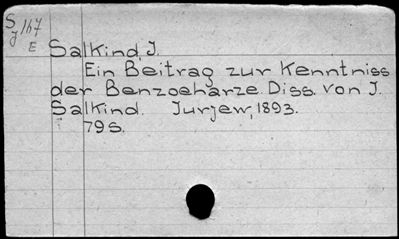 S/J 167
E
Salkind, J.
Ein Beitrag zur Kenntniss
der Benzoeharze. Diss. von J.
Salkind. Jurjew, 1893.
79 S.